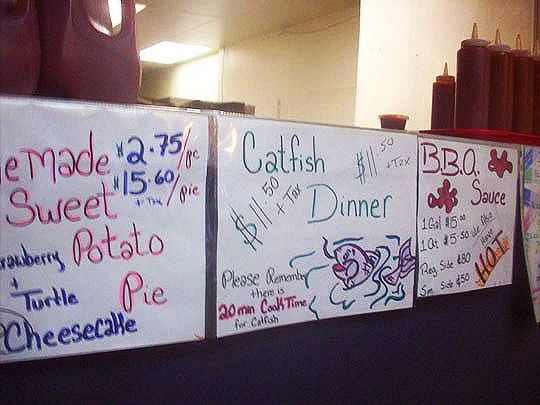 emade $2.75/pc
Sweet $15.60/pie
+ Tax
Potato
Pie
rawberry
+
Turtle
Cheesecake
Catfish
$11.50
+ Tax
$11.50
+ Tax
Dinner
Please Remember
there is
20 min Cook Time
for Catfish
B.B.Q.
Sauce
1 Gal $15.00
1 Qt $5.50
We Also
Have
HOT
Reg. Side $.80
Sm. Side $.50